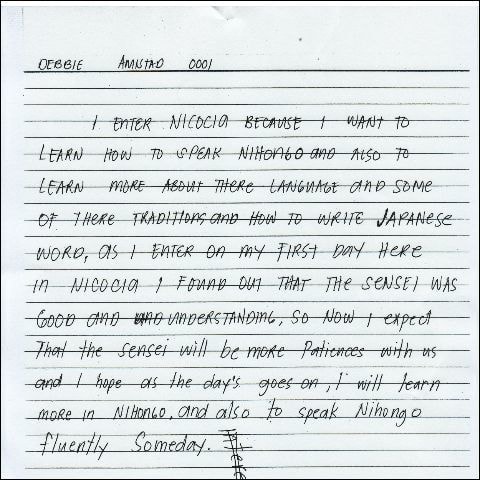 DEBBIE AMISTAD 0001
I ENTER NICOCIA BECAUSE I WANT TO
LEARN HOW TO SPEAK NIHONGO AND ALSO TO
LEARN MORE ABOUT THERE LANGUAGE and SOME
OF THERE TRADITIONS and HOW TO WRITE JAPANESE
WORD, AS I ENTER ON MY FIRST DAY HERE
IN NICOCIA I FOUND OUT THAT THE SENSEI WAS
GOOD AND UNDERSTANDING, SO NOW I expect
That the sensei will be more Patiences with us
and I hope as the day's goes on, I will learn
more in NIHONGO, and also to speak Nihongo
fluently Someday.